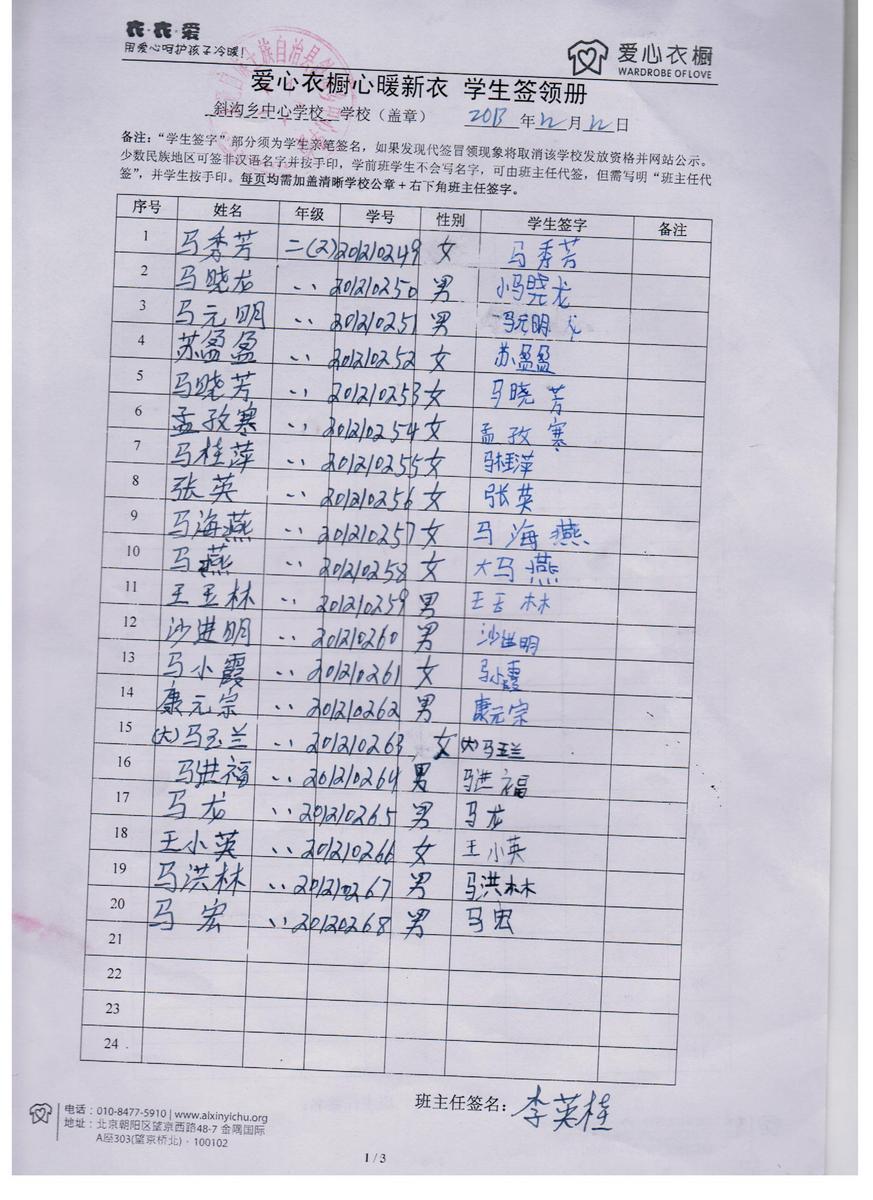 衣·衣·爱
用爱心呵护孩子冷暖!
爱心衣橱
WARDROBE OF LOVE
爱心衣橱心暖新衣 学生签领册
斜沟乡中心学校 学校（盖章） 2013 年12月12日
备注：“学生签字”部分须为学生亲笔签名，如果发现代签冒领现象将取消该学校发放资格并网站公示。
少数民族地区可签非汉语名字并按手印，学前班学生不会写名字，可由班主任代签，但需写明“班主任代
签”，并学生按手印。每页均需加盖清晰学校公章+右下角班主任签字。
序号 姓名 年级 学号 性别 学生签字 备注
1 马秀芳 二(2) 201210249 女 马秀芳
2 马晓龙 ,, 201210250 男 小马晓龙
3 马元明 ,, 201210251 男 马元明
4 苏盈盈 ,, 201210252 女 苏盈盈
5 马晓芳 ,, 201210253 女 马晓芳
6 孟孜寒 ,, 201210254 女 孟孜寒
7 马桂萍 ,, 201210255 女 马桂萍
8 张英 ,, 201210256 女 张英
9 马海燕 ,, 201210257 女 马海燕
10 马燕 ,, 201210258 女 大马燕
11 王玉林 ,, 201210259 男 王玉林
12 沙进明 ,, 201210260 男 沙进明
13 马小霞 ,, 201210261 女 马小霞
14 康元宗 ,, 201210262 男 康元宗
15 (大)马玉兰 ,, 201210263 女 (大)马玉兰
16 马进福 ,, 201210264 男 马进福
17 马龙 ,, 201210265 男 马龙
18 王小英 ,, 201210266 女 王小英
19 马洪林 ,, 201210267 男 马洪林
20 马宏 ,, 20120268 男 马宏
21
22
23
24
班主任签名：李英桂
电话：010-8477-5910 | www.aixinyichu.org
地址：北京朝阳区望京西路48-7 金隅国际
A座303(望京桥北)·100102
1 / 3